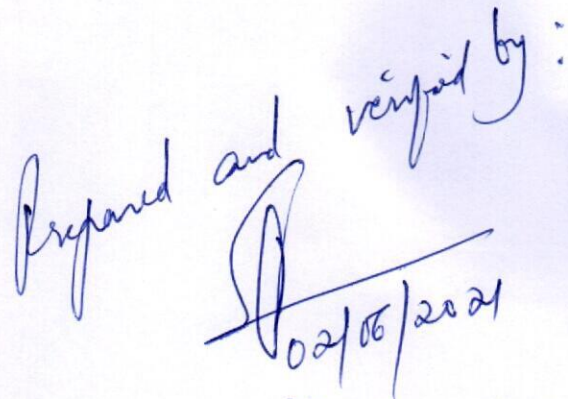 Prepared and verified by:
02/06/2021